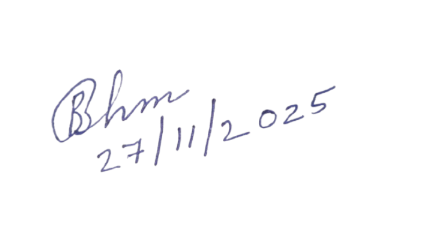 Bhm
27/11/2025